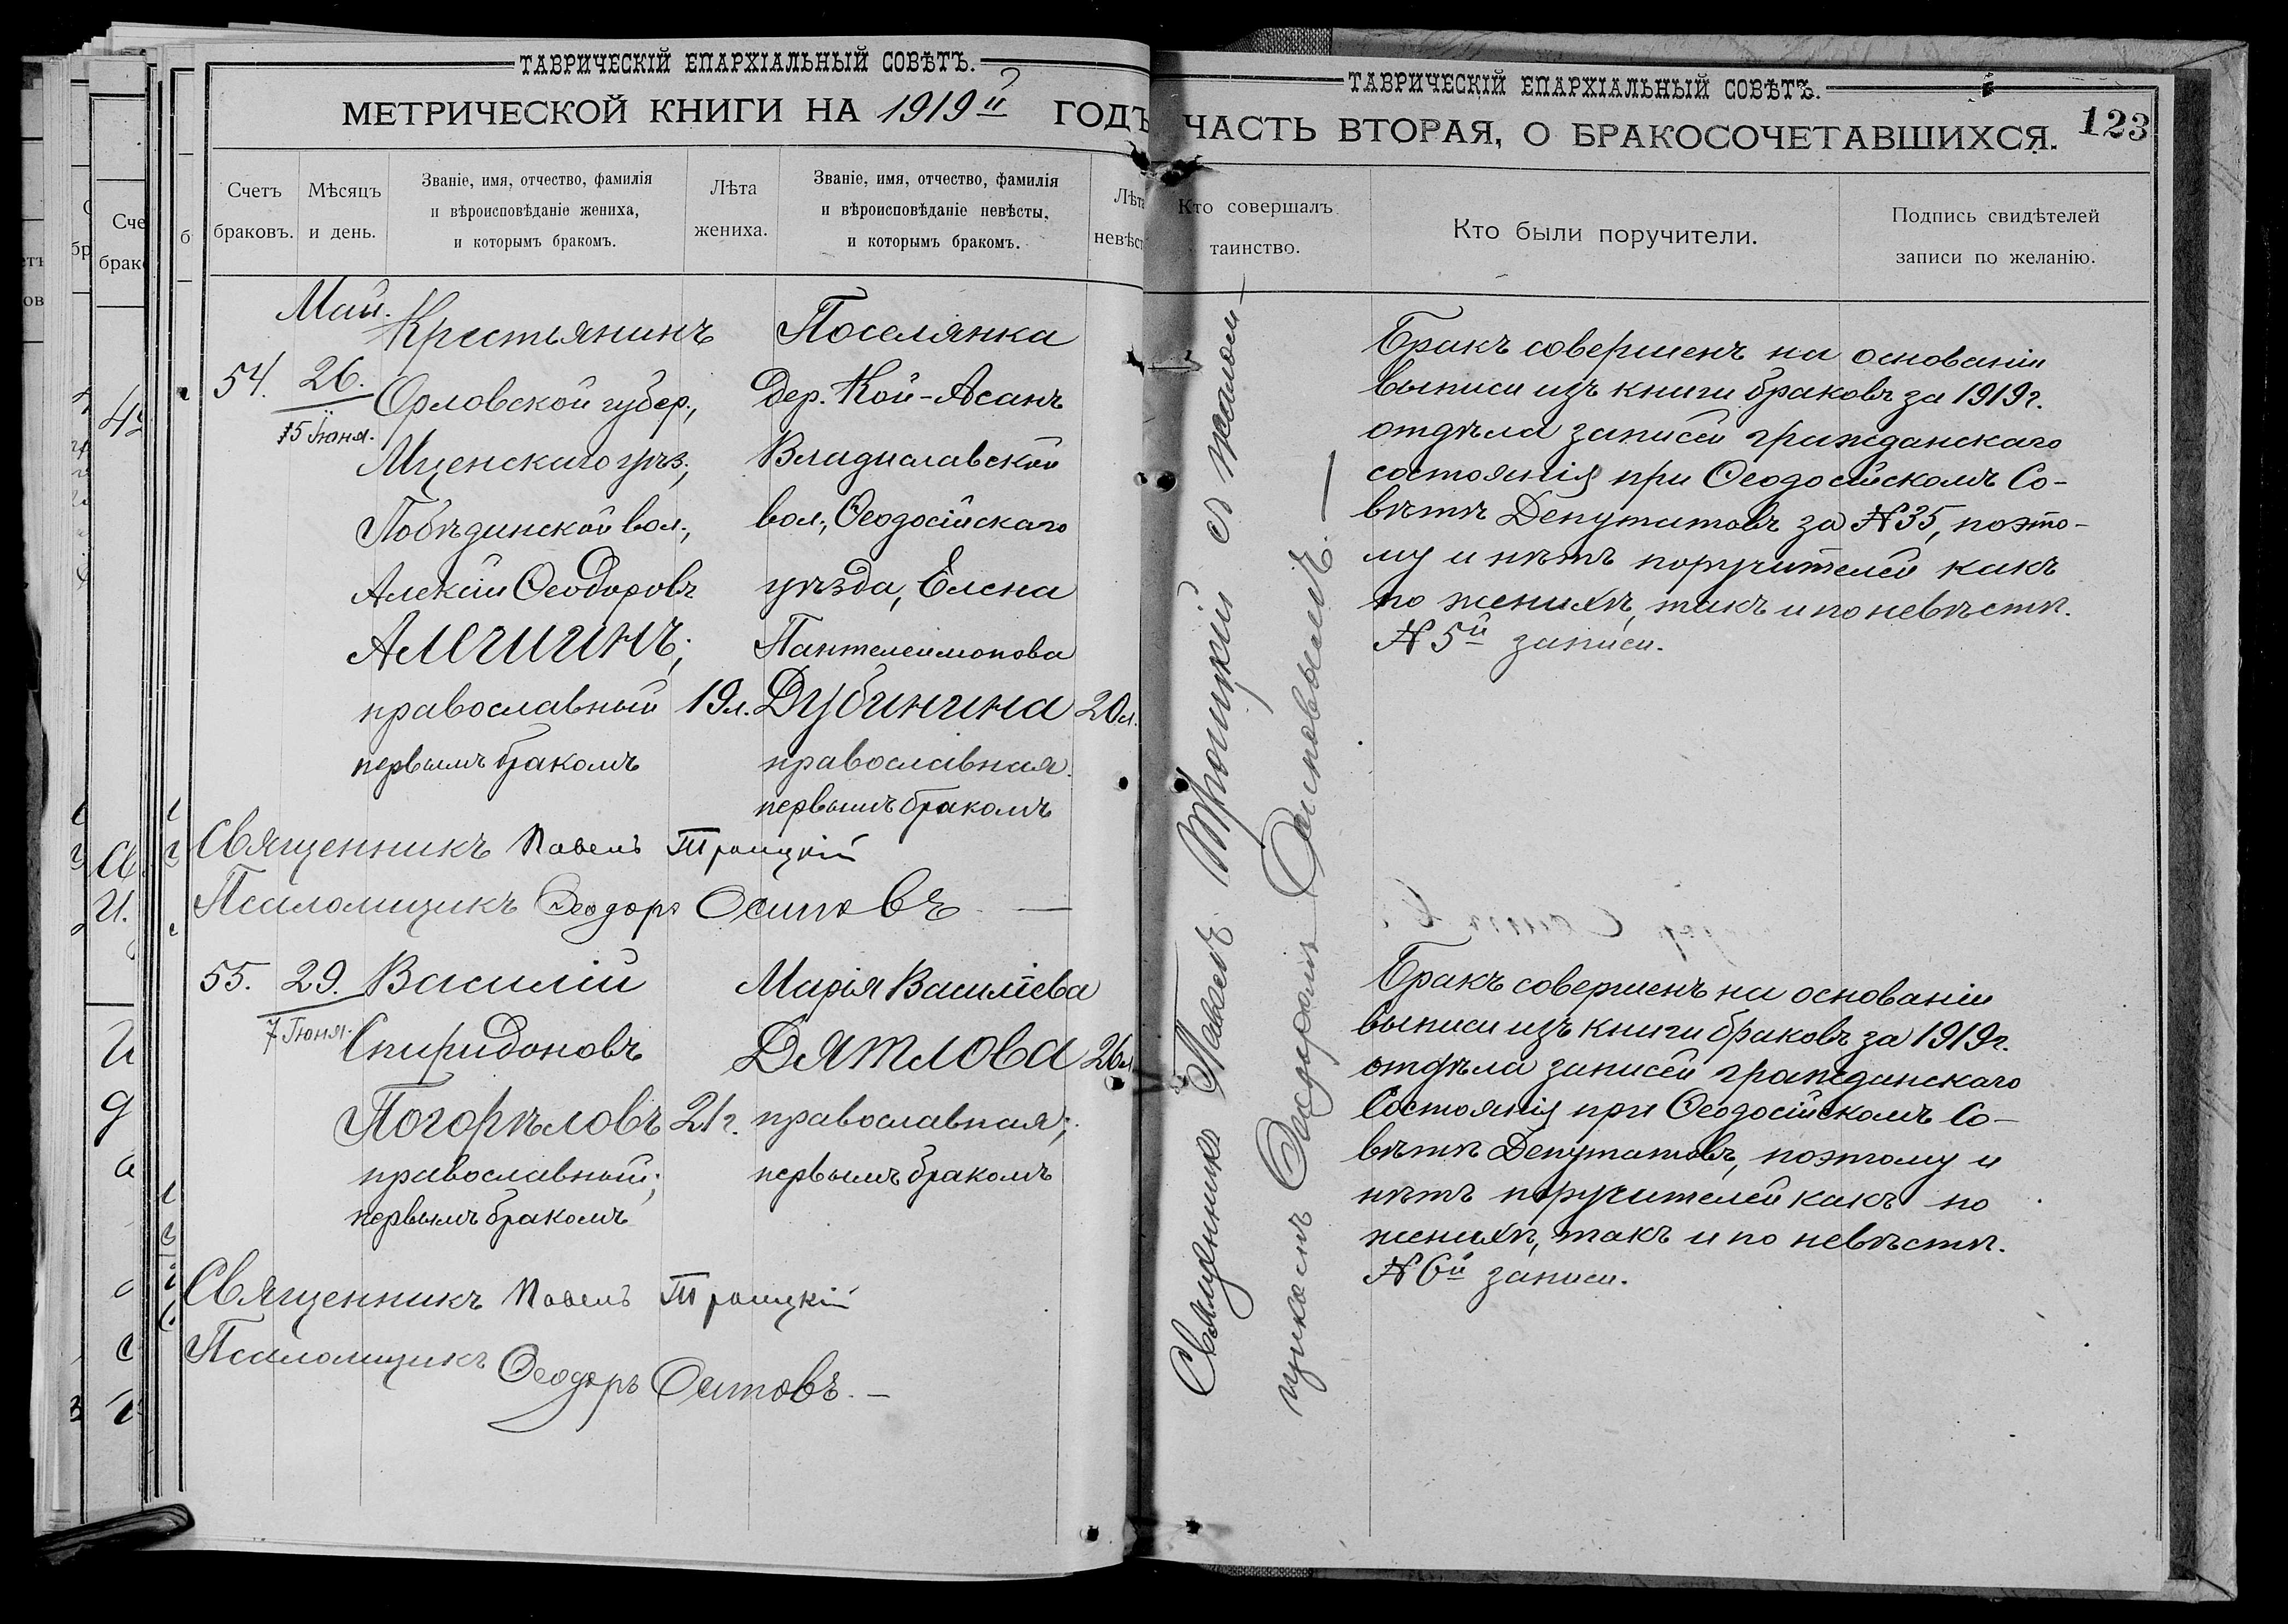 ТАВРИЧЕСКІЙ ЕПАРХІАЛЬНЫЙ СОВѢТЪ.
МЕТРИЧЕСКОЙ КНИГИ НА 1919й ГОДЪ
Счетъ браковъ.
Мѣсяцъ и день.
Званіе, имя, отчество, фамилія
и вѣроисповѣданіе жениха,
и которымъ бракомъ.
Лѣта
жениха.
Званіе, имя, отчество, фамилія
и вѣроисповѣданіе невѣсты,
и которымъ бракомъ.
Лѣта
невѣст
Май.
54.
26.
15 Іюня.
Крестьянинъ
Орловской губер.,
Мценскаго уѣз.,
Побѣдинской вол.,
Алексій Ѳеодоровъ
Алегигинъ;
православный
первымъ бракомъ
19л.
Поселянка
дер. Кой-Асанъ
Владиславской
вол., Ѳеодосійскаго
уѣзда, Елена
Пантелеимонова
Дубинина
православная.
первымъ бракомъ
20л.
Священникъ Павелъ Троицкій
Псаломщикъ Ѳеодоръ Осиповъ —
55.
29.
7 Іюня.
Василій
Спиридоновъ
Погорѣловъ
православный;
первымъ бракомъ
21г.
Марія Василіева
Дятлова
православная;
первымъ бракомъ
26л.
Священникъ Павелъ Троицкій
Псаломщикъ Ѳеодоръ Осиповъ. —
ТАВРИЧЕСКІЙ ЕПАРХІАЛЬНЫЙ СОВѢТЪ.
ЧАСТЬ ВТОРАЯ, О БРАКОСОЧЕТАВШИХСЯ.
123
Кто совершалъ
таинство.
Кто были поручители.
Подпись свидѣтелей
записи по желанію.
Священникъ Павелъ Троицкій съ псалом-
щикомъ Ѳеодоромъ Осиповымъ. —
Бракъ совершенъ на основаніи
выписи изъ книги браковъ за 1919г.
отдѣла записей гражданскаго
состоянія при Ѳеодосійскомъ Со-
вѣтѣ Депутатовъ за № 35, поэто-
му и нѣтъ поручителей какъ
по женихѣ, такъ и по невѣстѣ.
№ 5й записи.
Бракъ совершенъ на основаніи
выписи изъ книги браковъ за 1919г.
отдѣла записей гражданскаго
Состоянія при Ѳеодосійскомъ Со-
вѣтѣ Депутатовъ, поэтому и
нѣтъ поручителей какъ по
женихѣ, такъ и по невѣстѣ.
№ 6й записи.